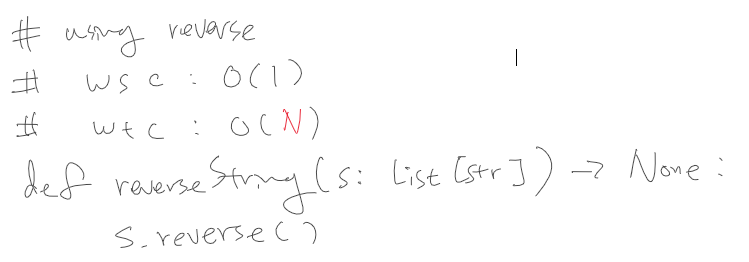 # using reverse
# wsc : O(1)
# wtc : O(N)
def reverseString(s: List[str]) -> None:
s.reverse()